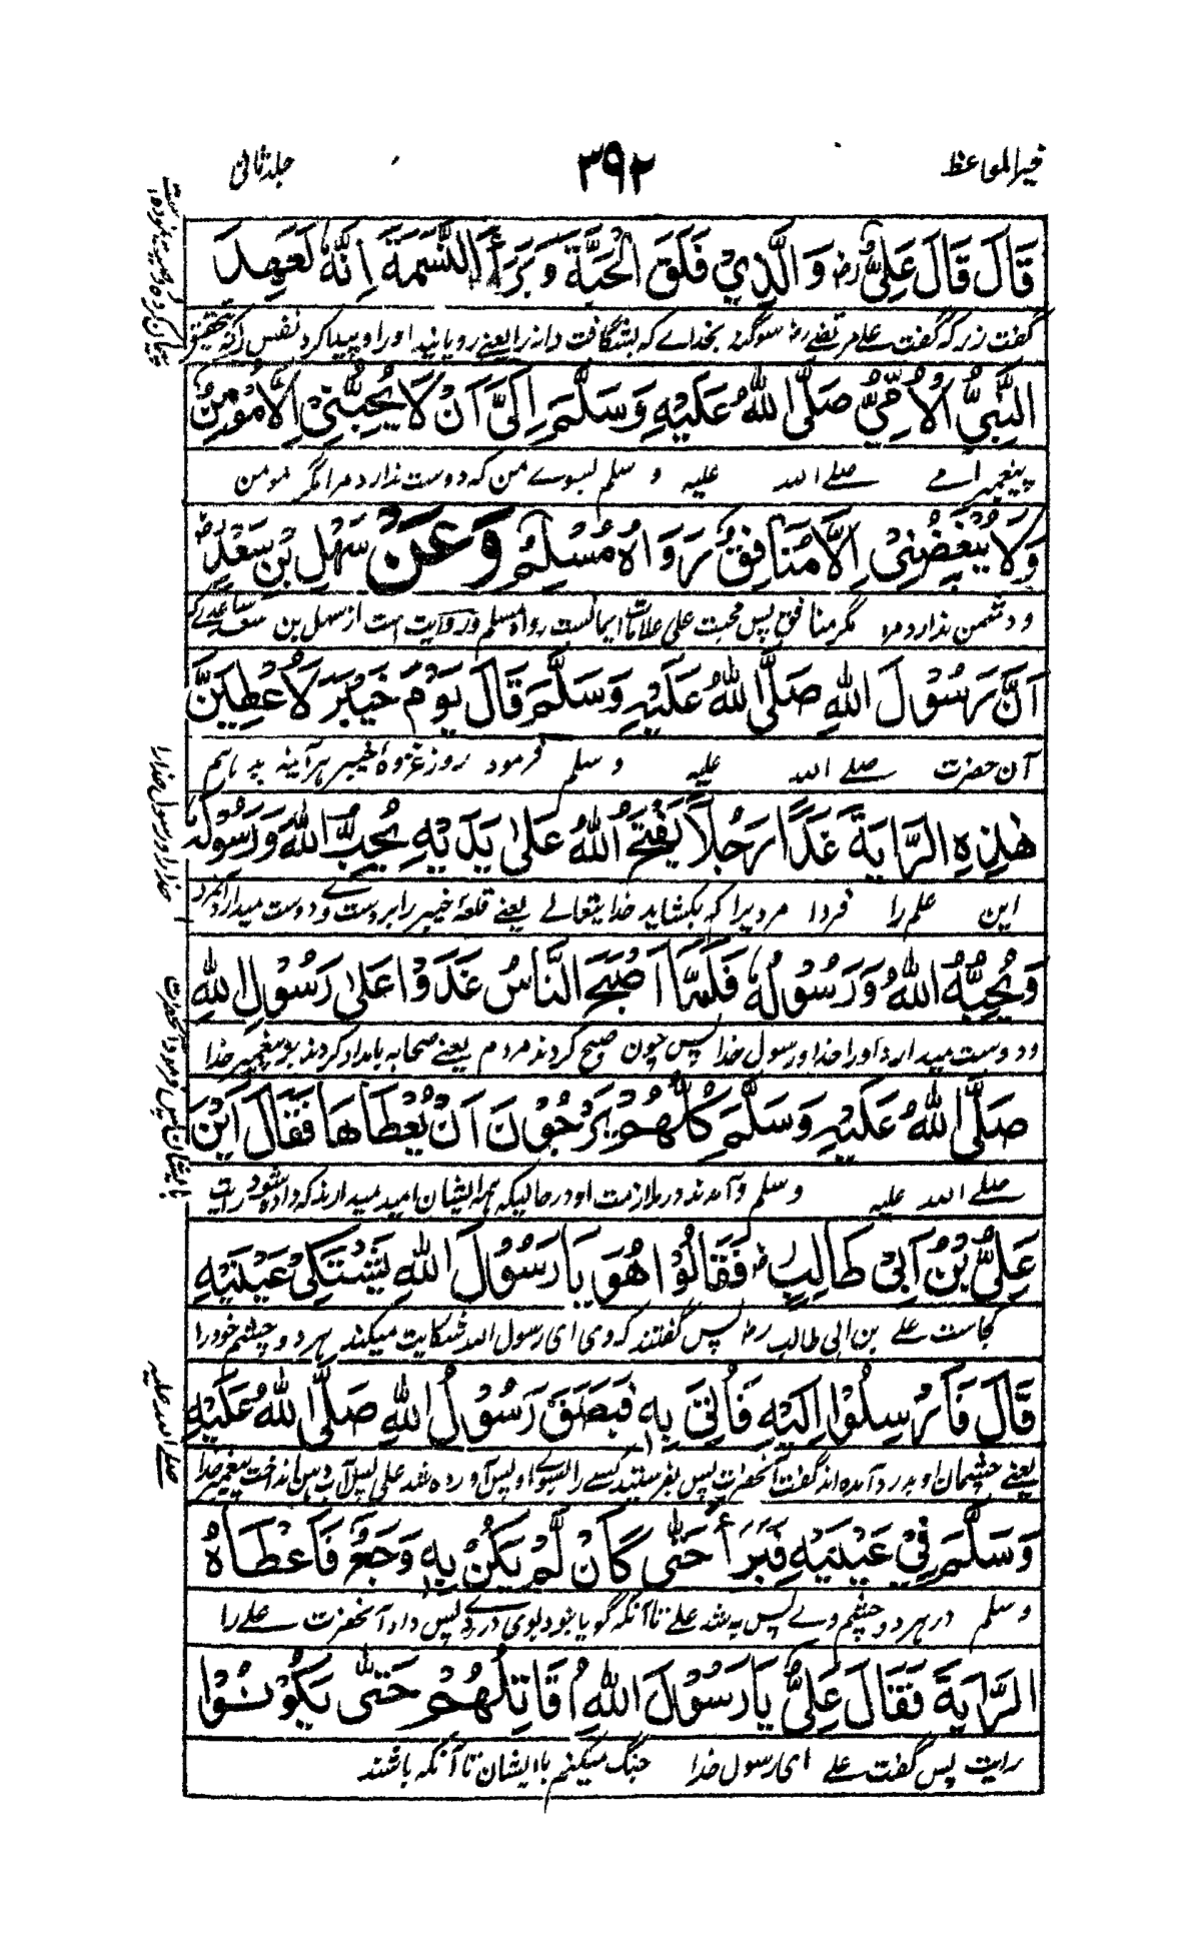 خیر المواعظ
۳۹۲
جلد ثانی
قَالَ قَالَ عَلِيٌّ رض وَالَّذِيْ فَلَقَ الْحَبَّةَ وَبَرَأَ النَّسَمَةَ اِنَّهٗ لَعَهِدَ
گفت زر که گفت علے مرتضے رض سوگند بخداے که بشگافت دانه را یعنے رویانید او را و پیدا کرد نفس را که بتحقیق
النَّبِيُّ الْاُمِّيُّ صَلَّى اللهُ عَلَيْهِ وَسَلَّمَ اِلَيَّ اَنْ لَا يُحِبَّنِيْ اِلَّا مُؤْمِنٌ
پیغمبر امے صلے الله علیه و سلم بسوے من که دوست ندارد مرا مگر مومن
وَلَا يُبْغِضُنِيْ اِلَّا مُنَافِقٌ رَوَاهُ مُسْلِمٌ وَعَنْ سَهْلِ بْنِ سَعْدٍ رض
و دشمن ندارد مرا مگر منافق پس محبت علی علامات ایمانست رواه مسلم و روایت است از سهل بن سعد ساعدی که
اَنَّ رَسُوْلَ اللهِ صَلَّى اللهُ عَلَيْهِ وَسَلَّمَ قَالَ يَوْمَ خَيْبَرَ لَاُعْطِيَنَّ
آن حضرت صلے الله علیه و سلم فرمود روز غزوۂ خیبر هر آینه بدهم
هٰذِهِ الرَّايَةَ غَدًا رَجُلًا يَفْتَحُ اللهُ عَلٰى يَدَيْهِ يُحِبُّ اللهَ وَرَسُوْلَهٗ
این علم را فردا مردیرا که بکشاید خدایتعالے یعنے قلعۂ خیبر را بر دست وے و دوست میدارد آنمرد
وَيُحِبُّهُ اللهُ وَرَسُوْلُهٗ فَلَمَّا اَصْبَحَ النَّاسُ غَدَوْا عَلٰى رَسُوْلِ اللهِ
و دوست میدارد او را خدا و رسول خدا پس چون صبح کردند مردم یعنے صحابه بامداد کردند بر پیغمبر خدا
صَلَّى اللهُ عَلَيْهِ وَسَلَّمَ كُلُّهُمْ يَرْجُوْنَ اَنْ يُعْطَاهَا فَقَالَ اَيْنَ
صلے الله علیه وسلم و آمدند در ملازمت او در حالیکه همه ایشان امید میدارند که داده شود رایت
عَلِيُّ بْنُ اَبِيْ طَالِبٍ رض فَقَالُوْا هُوَ يَا رَسُوْلَ اللهِ يَشْتَكِيْ عَيْنَيْهِ
کجاست علے بن ابی طالب رض پس گفتند که وی ای رسول الله شکایت میکند هر دو چشم خود را
قَالَ فَاَرْسِلُوْا اِلَيْهِ فَاُتِيَ بِهٖ فَبَصَقَ رَسُوْلُ اللهِ صَلَّى اللهُ عَلَيْهِ
یعنے چشمان او بدرد آمده اند گفت آنحضرت پس بفرستید کسے را بسوے او پس آورده شد علی پس آب دهن انداخت پیغمبر خدا
وَسَلَّمَ فِيْ عَيْنَيْهِ فَبَرَأَ حَتّٰى كَاَنْ لَّمْ يَكُنْ بِهٖ وَجَعٌ فَاَعْطَاهُ
و سلم در هر دو چشم وے پس به شد علے تا آنکه گویا نبود بوی دردے پس داد آنحضرت علے را
الرَّايَةَ فَقَالَ عَلِيٌّ يَا رَسُوْلَ اللهِ اُقَاتِلُهُمْ حَتّٰى يَكُوْنُوْا
رایت پس گفت علے ای رسول خدا جنگ میکنم با ایشان تا آنکه باشند
خدا را و رسول خدا را
بایشان پس فرمود آنحضرت
صلے الله علیه